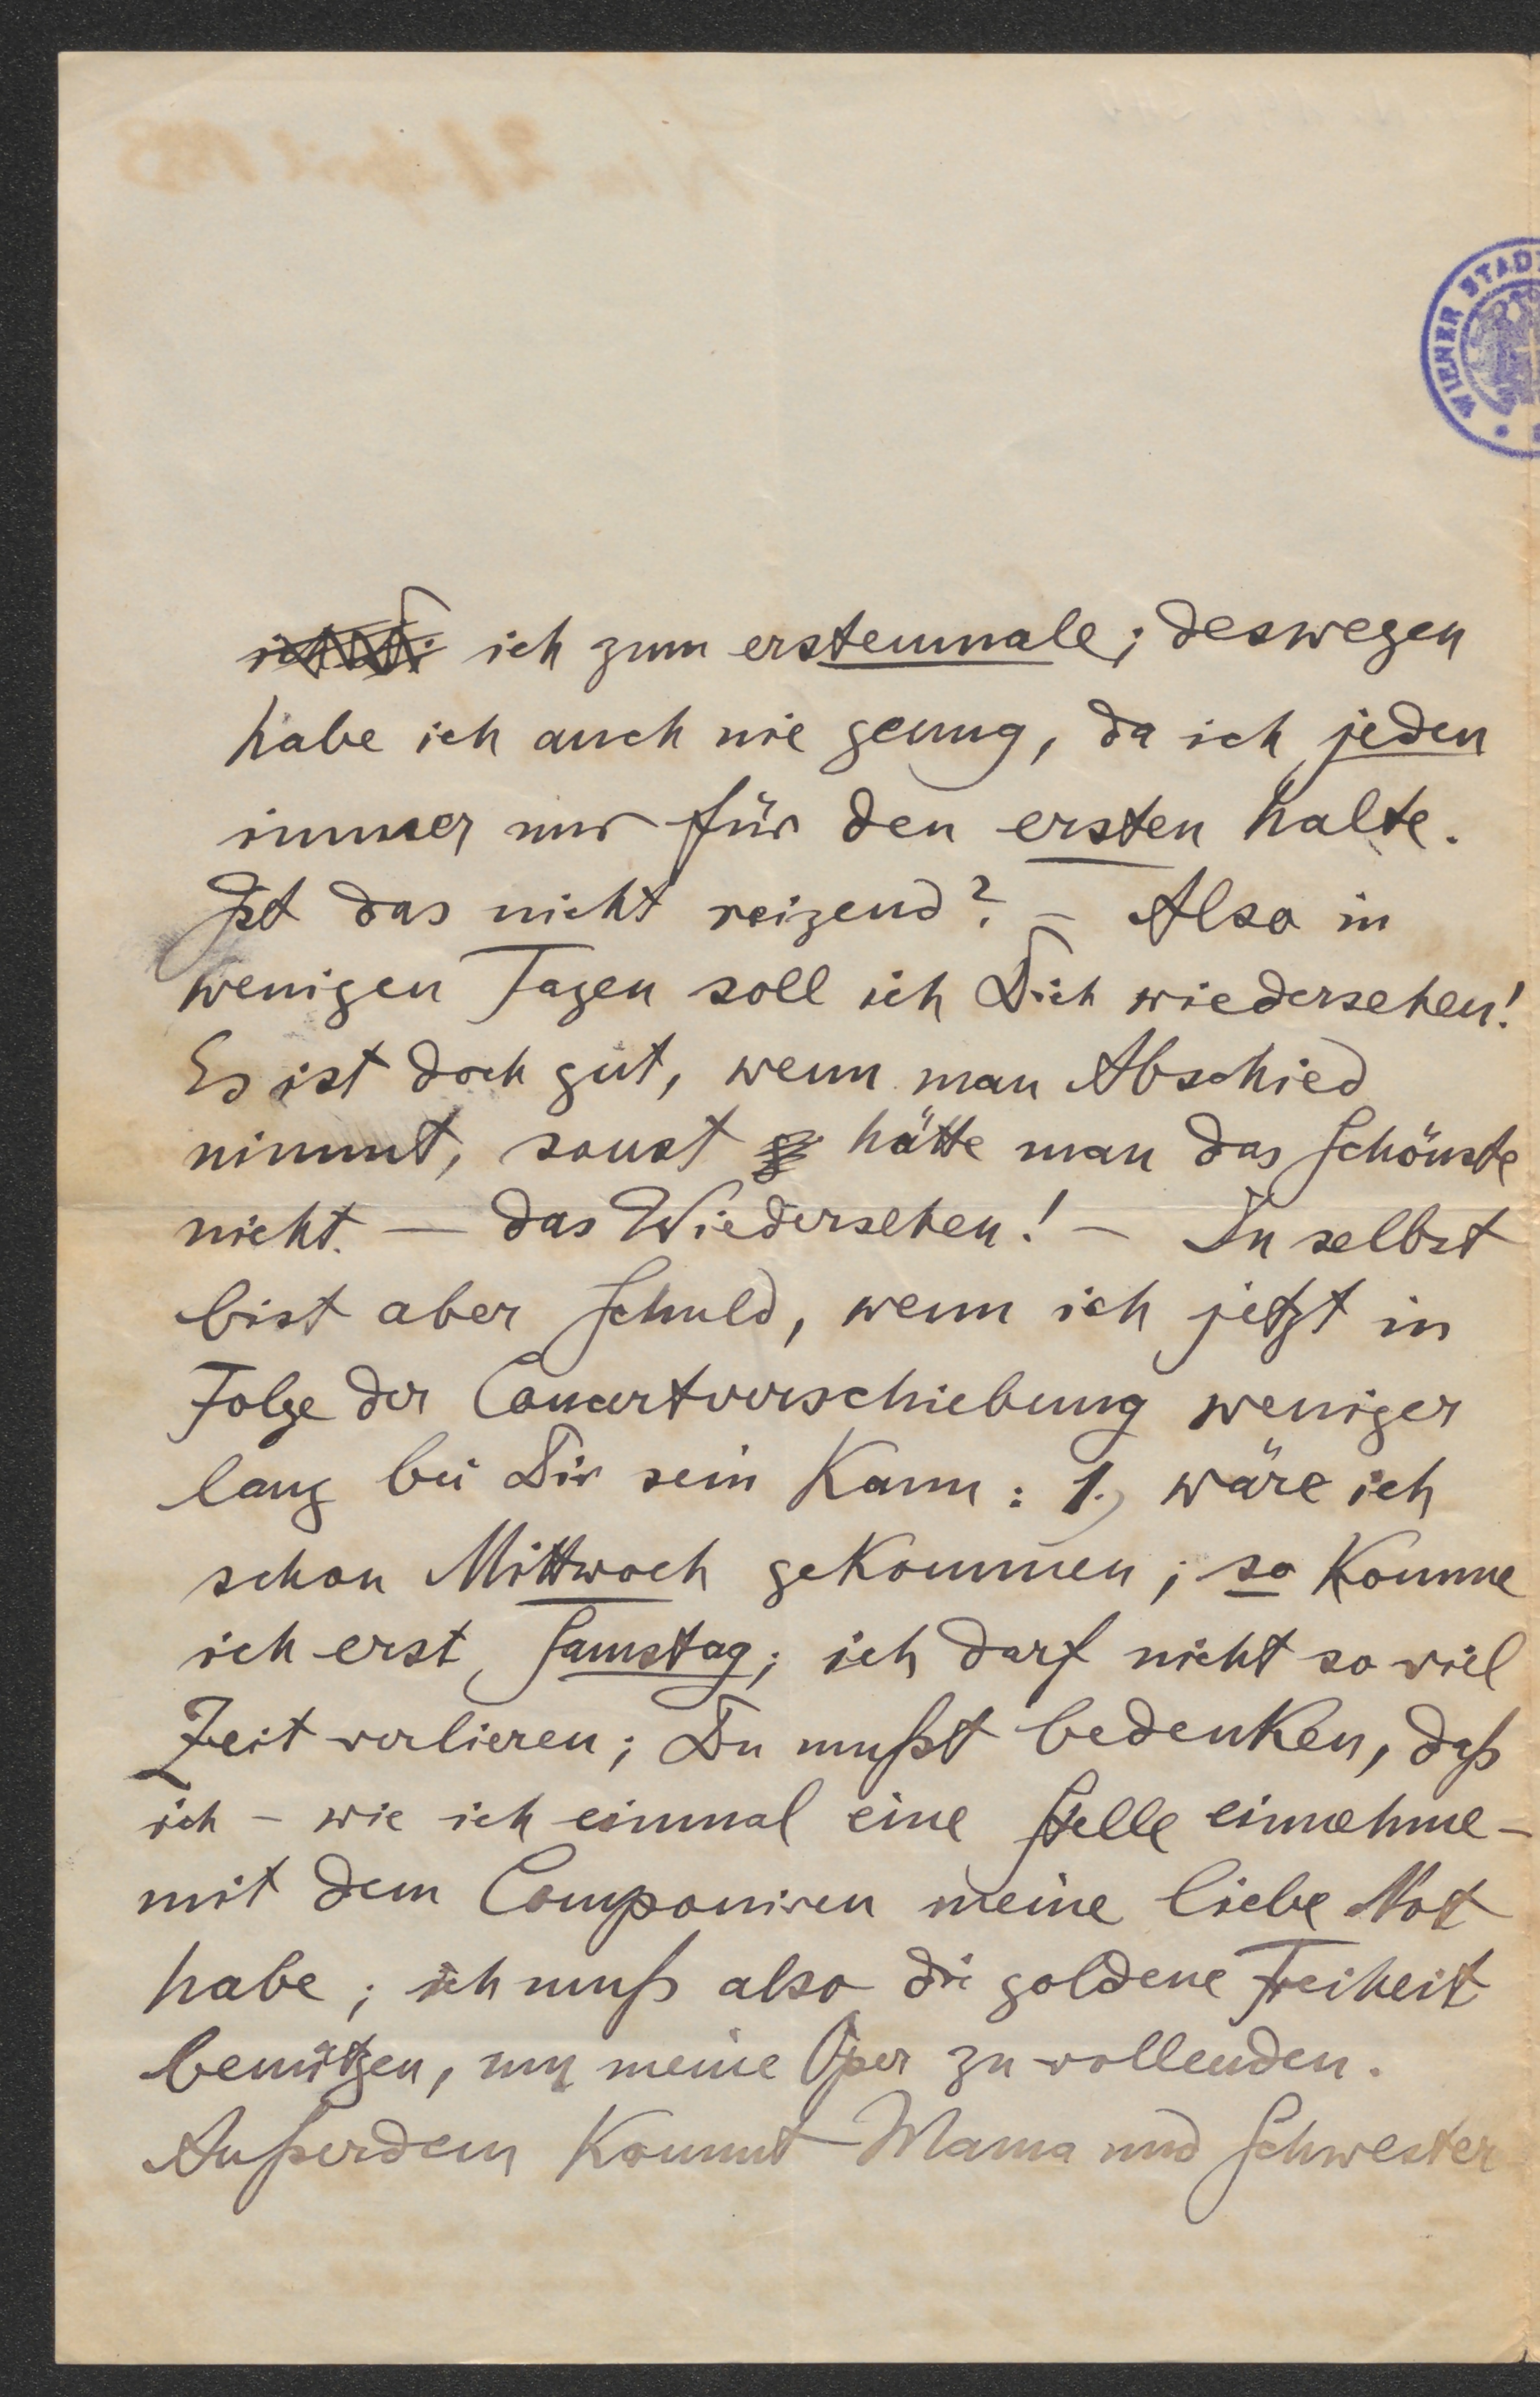 WIENER STAD
ich zum erstenmale; deswegen
habe ich auch nie genug, da ich jeden
immer nur für den ersten halte.
Ist das nicht reizend? – Also in
wenigen Tagen soll ich Dich wiedersehen!
Es ist doch gut, wenn man Abschied
nimmt, sonst hätte man das Schönste
nicht. — das Wiedersehen! – Du selbst
bist aber Schuld, wenn ich jetzt in
Folge der Concertverschiebung weniger
lang bei Dir sein kann: 1.) wäre ich
schon Mittwoch gekommen; so komme
ich erst Samstag; ich darf nicht so viel
Zeit verlieren; Du mußt bedenken, daß
ich – wie ich einmal eine Stelle einnehme –
mit dem Componiren meine liebe Not
habe; ich muß also die goldene Freiheit
benützen, um meine Oper zu vollenden.
Außerdem kommt Mama und Schwester